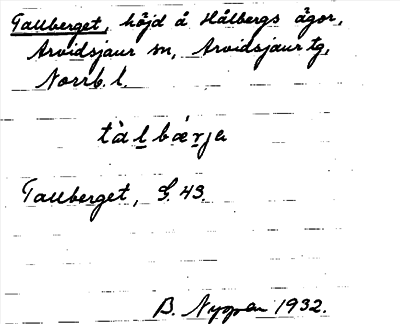 Tallberget, höjd å Hålbergs ägor,
Arvidsjaur sn, Arvidsjaur tg,
Norrb. l.
tàl̲bær̲ja
Tallberget, G. 43.
B. Nyman 1932.